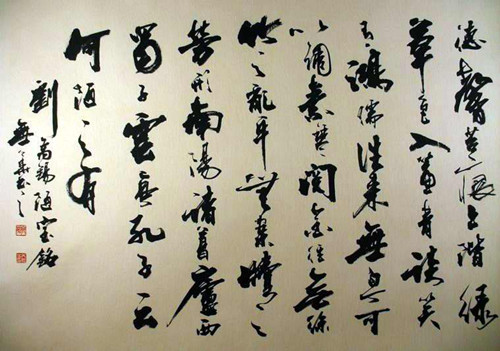 德馨苔痕上階緑
草色入簾青談笑
有鴻儒往来無白丁可
以調素琴閲金经無絲
竹之亂耳無案牘之
勞形南陽諸葛廬西
蜀子雲亭孔子云
何陋之有
劉禹锡陋室銘